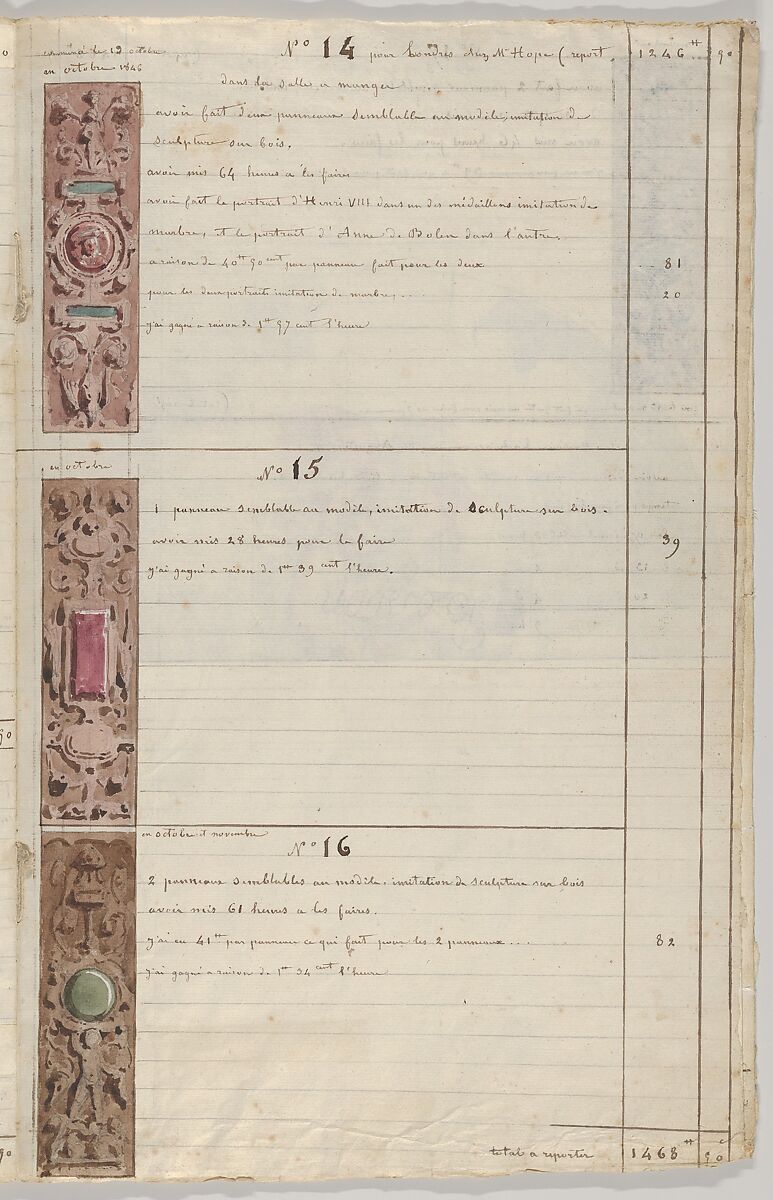 commencé le 13 octobre
en octobre 1846
N° 14 pour Londres chez Mr Hope (report. 1246 tt 90
dans la salle a manger
avoir fait deux panneaux semblable au modèle, imitation de
sculpture sur bois.
avoir mis 64 heures a les faires
avoir fait le portrait d'Henri VIII dans un des médaillons imitation de
marbre, et le portrait d'Anne de Bolen dans l'autre,
a raison de 40 tt 50 cent par panneau fait pour les deux ... 81
pour les deux portraits imitation de marbre, ... 20
j'ai gagné a raison de 1 tt 57 cent l'heure
en octobre
N° 15
1 panneau semblable au modèle, imitation de sculpture sur bois.
avoir mis 28 heures pour le faire 39
j'ai gagné a raison de 1 tt 39 cent l'heure.
en octobre et novembre
N° 16
2 panneaux semblables au modèle. imitation de sculpture sur bois
avoir mis 61 heures a les faires.
j'ai eu 41 tt par panneau ce qui fait pour les 2 panneaux ... 82
j'ai gagné a raison de 1 tt 34 cent l'heure
total a reporter 1468 tt 90 c